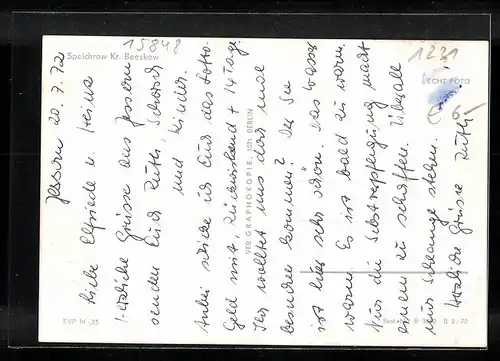 Speichrow Kr. Beeskow
15848
1231
ECHT FOTO
€ 6,-
Jessern 20.7.72
Liebe Elfriede u. Heinz
Herzliche Grüsse aus Jessern
senden Euch Ruth, Schorsch
und Kinder.
Anbei schicke ich Euch das Foto.
Geld mit. Rückwirkend + 14 Tage.
Ihr wolltet uns doch mal
besuchen kommen? Der See
ist hier sehr schön. Das Wasser
warm. Es ist bald zu warm.
Nur die Selbstverpflegung macht
einem zu schaffen. Überall
nur Schlange stehen.
Herzliche Grüsse Ruth
VEB GRAPHOKOPIE, 1071 BERLIN
EVP M -,25
B 2/72